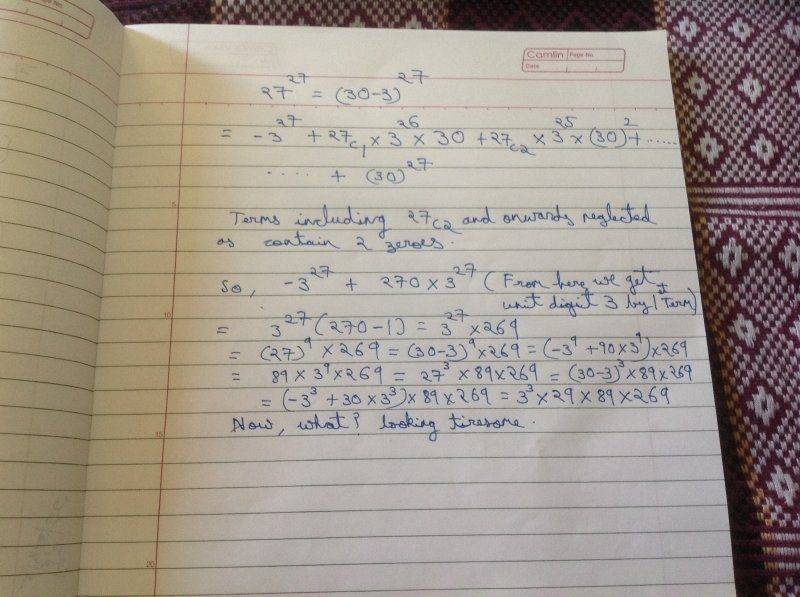 Camlin Page No.
Date
27^27 = (30-3)^27
= -3^27 + 27c1 × 3^26 × 30 + 27c2 × 3^25 × (30)^2 + ......
.... + (30)^27
Terms including 27c2 and onwards neglected
as contain 2 zeroes.
So, -3^27 + 270 × 3^27 (From here we get
unit digit 3 by 1st Term)
= 3^27 (270-1) = 3^27 × 269
= (27)^9 × 269 = (30-3)^9 × 269 = (-3^9 + 90 × 3^9) × 269
= 89 × 3^9 × 269 = 27^3 × 89 × 269 = (30-3)^3 × 89 × 269
= (-3^3 + 30 × 3^3) × 89 × 269 = 3^3 × 29 × 89 × 269
Now, what? looking tiresome.
5
10
15
20